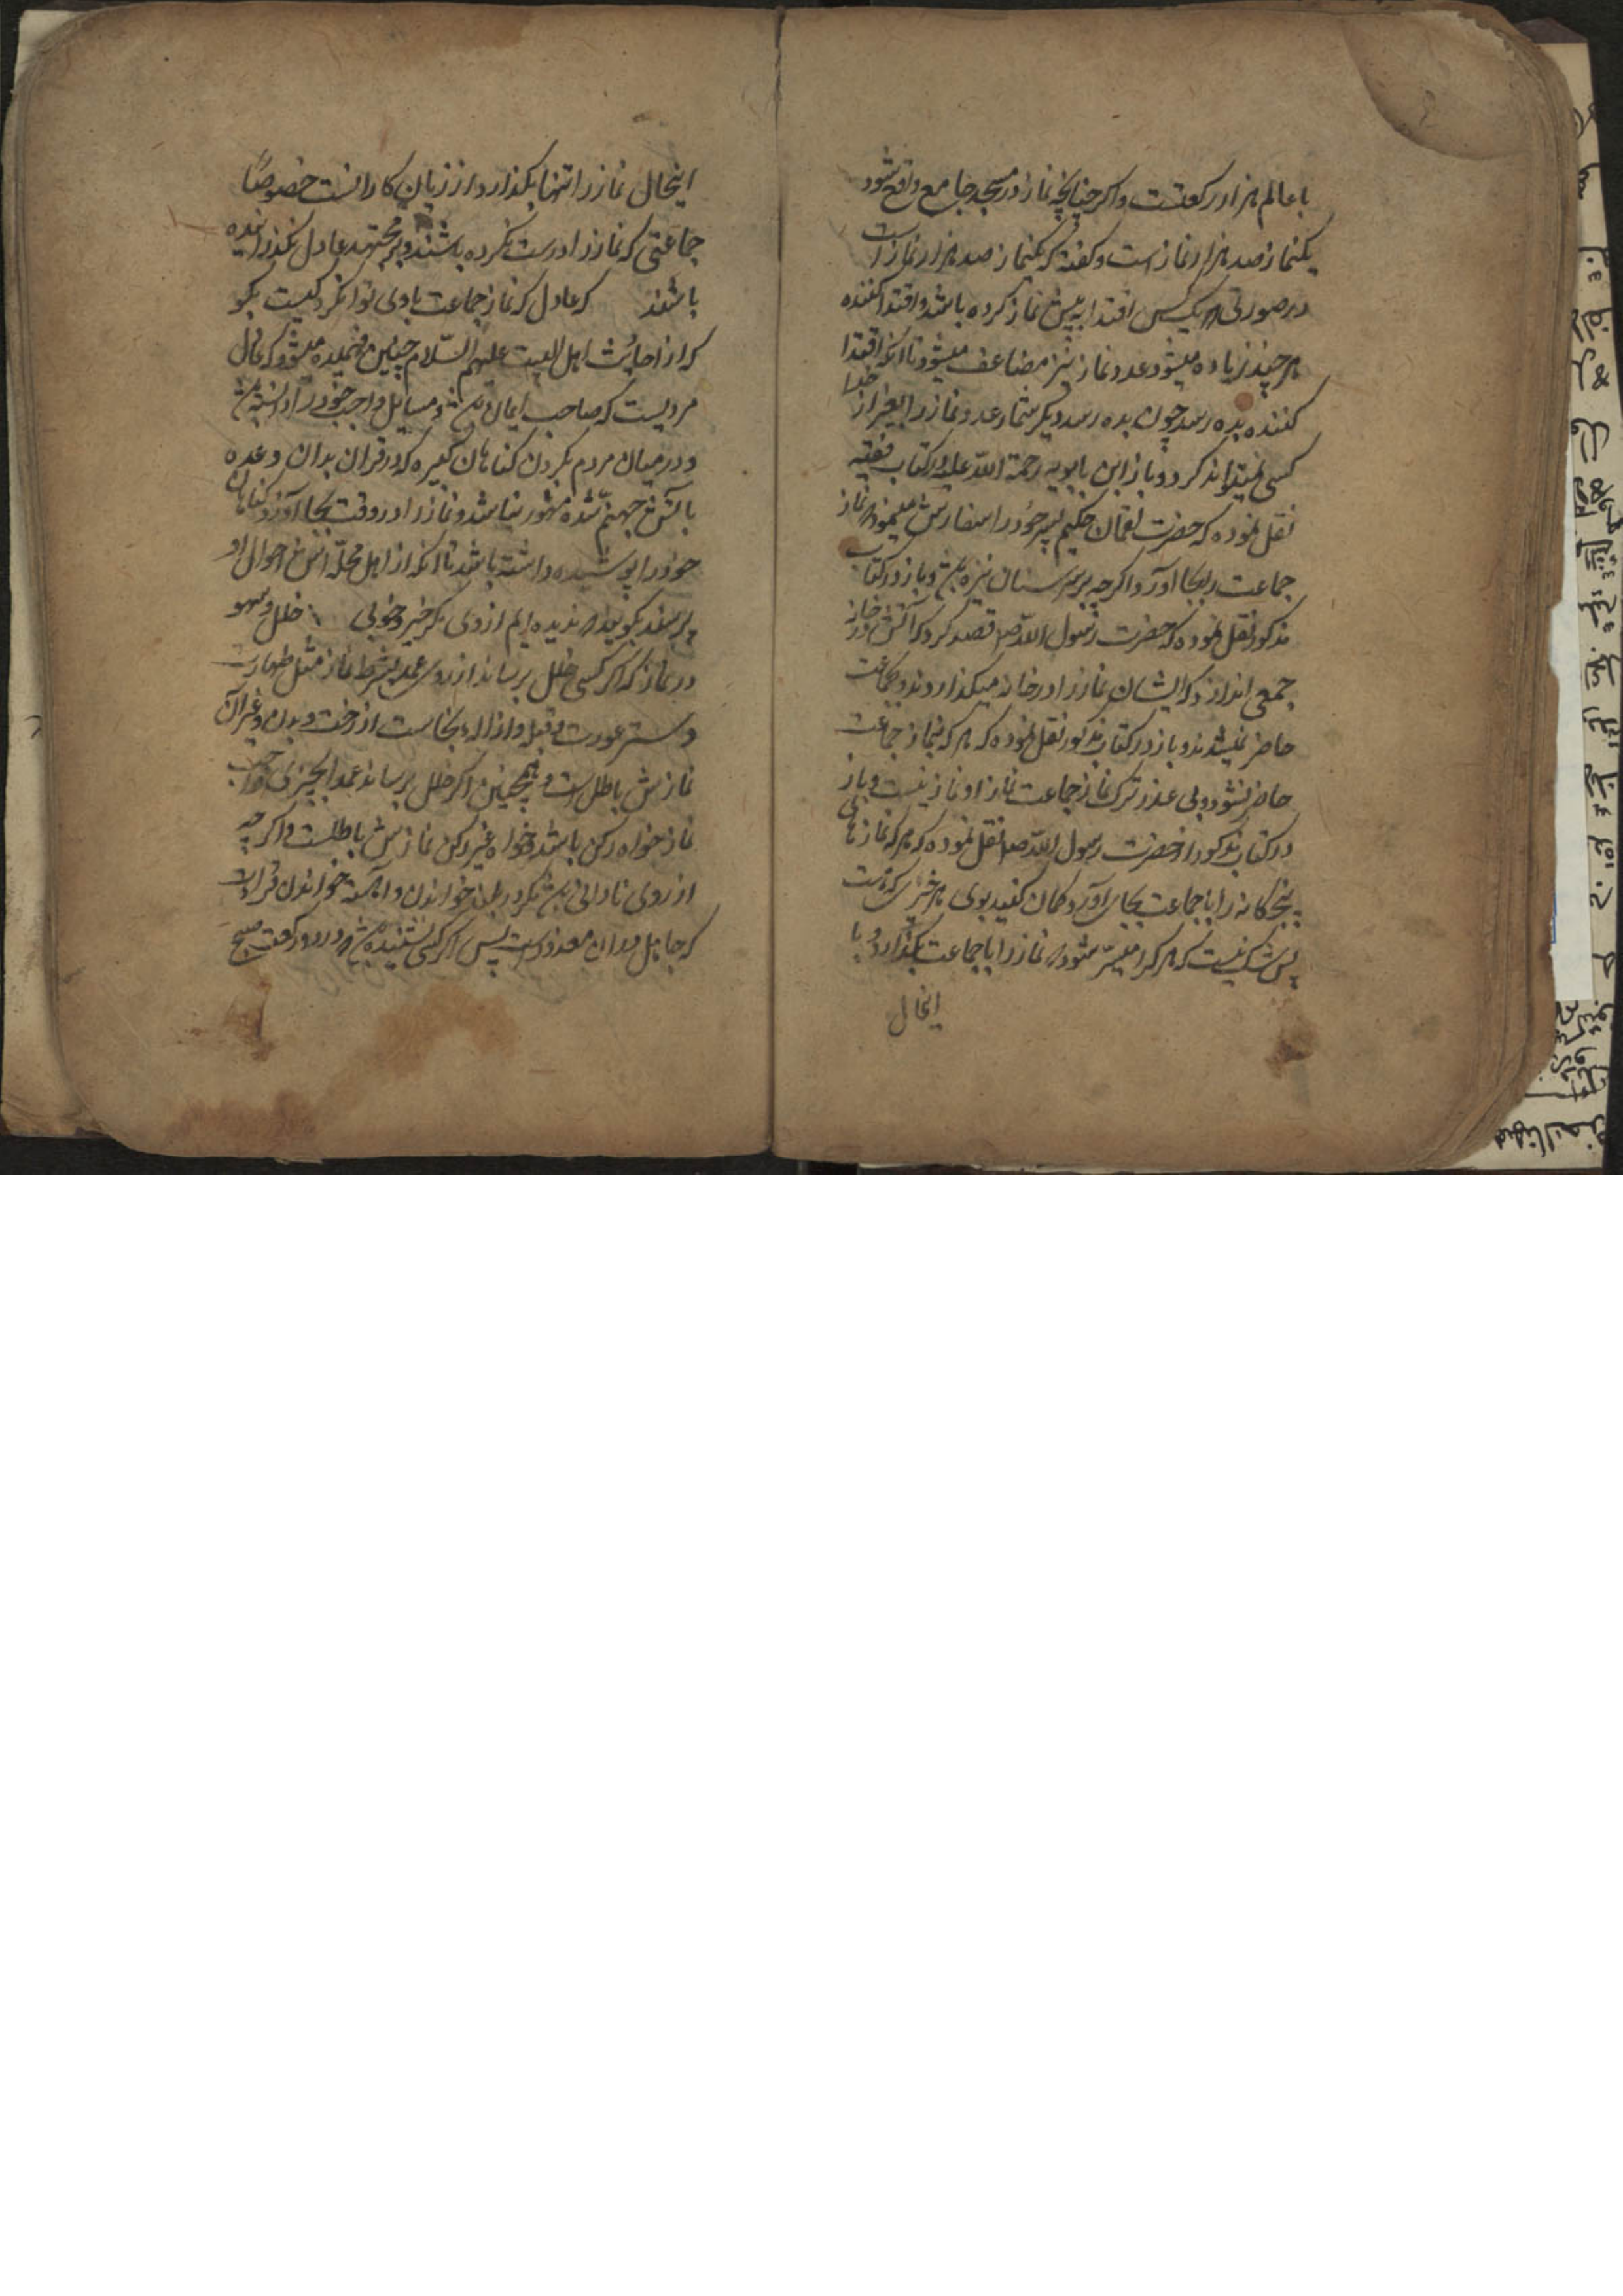 با عالم هزار رکعتست و اکر چنانچه نماز در مسجد جامع واقع شود
یکنماز صد هزار نماز است و کفته که یکنماز صد هزار نماز است
در صورتی که یک کس اقتدا به پیش نماز کرده باشد و اقتدا کننده
هر چند زیاده میشود عدد نماز نیز مضاعف میشود تا انکه اقتدا
کننده بده رسد چون بده رسد دیکر شمار عدد نماز را بغیر از خدا
کسی نمیتواند کرد و باز ابن بابویه رحمة الله علیه در کتاب فقیه
نقل نموده که حضرت لقمان حکیم پسر خود را سفارش مینمود که نماز
جماعت را بجا آور و اکرچه بر سر سنان نیزه باشی و باز در کتاب
مذکور نقل نموده که حضرت رسول الله صلعم قصد کرد که آتش در خانه
جمعی اندازد که ایشان نماز را در خانه میکذاردند و بجماعت
حاضر نمیشدند و باز در کتاب مذکور نقل نموده که هر که بنماز جماعت
حاضر نشود و بی عذر ترک نماز جماعت نماید او نماز نیست و باز
در کتاب مذکور از حضرت رسول الله صلعم نقل نموده که هر که نمازهای
پنجکانه را با جماعت بجای آورد کمان کنید بوی هر خیری که هست
پس شک نیست که هر کرا میسر شود که نماز را با جماعت بکذارد و با
اینحال
اینحال نماز را تنها بکذارد از زیان کارانست خصوصًا
جماعتی که نماز را درست نکرده باشند و بر مجتهد عادل نکذرانیده
باشند که عادل که نماز جماعت با وی توان کرد کیست بکو
که از احادیث اهل البیت علیهم السّلام چنین فهمیده میشود که عادل
مردیست که صاحب ایمان باشد و مسایل واجب خود را دانسته باشد
و در میان مردم بکردن کناهان کبیره که در قران بدان وعده
باتش جهنم شده مشهور نباشد و نماز را در وقت بجا آورد و کناهان
خود را پوشیده داشته باشد تا انکه از اهل محله اش احوال او
پرسند بکویند که ندیده ایم از وی بکر خیر و خوبی خلل و سهو
در نماز که اکر کسی خلل برساند از روی عمد بشرط نماز مثل طهارت
و ستر عورت و قبله و ازاله نجاست از رخت و بدن و غیر آن
نمازش باطل است و همچنین اکر خلل برساند عمدا بچیزی از واجب
نماز خواه رکن باشد و خواه غیر رکن نمازش باطلست و اکرچه
از روی نادانی باشد مکر در بلند خواندن و اهسته خواندن قرات
که جاهل در ان معذور است پس اکر کسی نشنیده باشد که در دو رکعت صبح